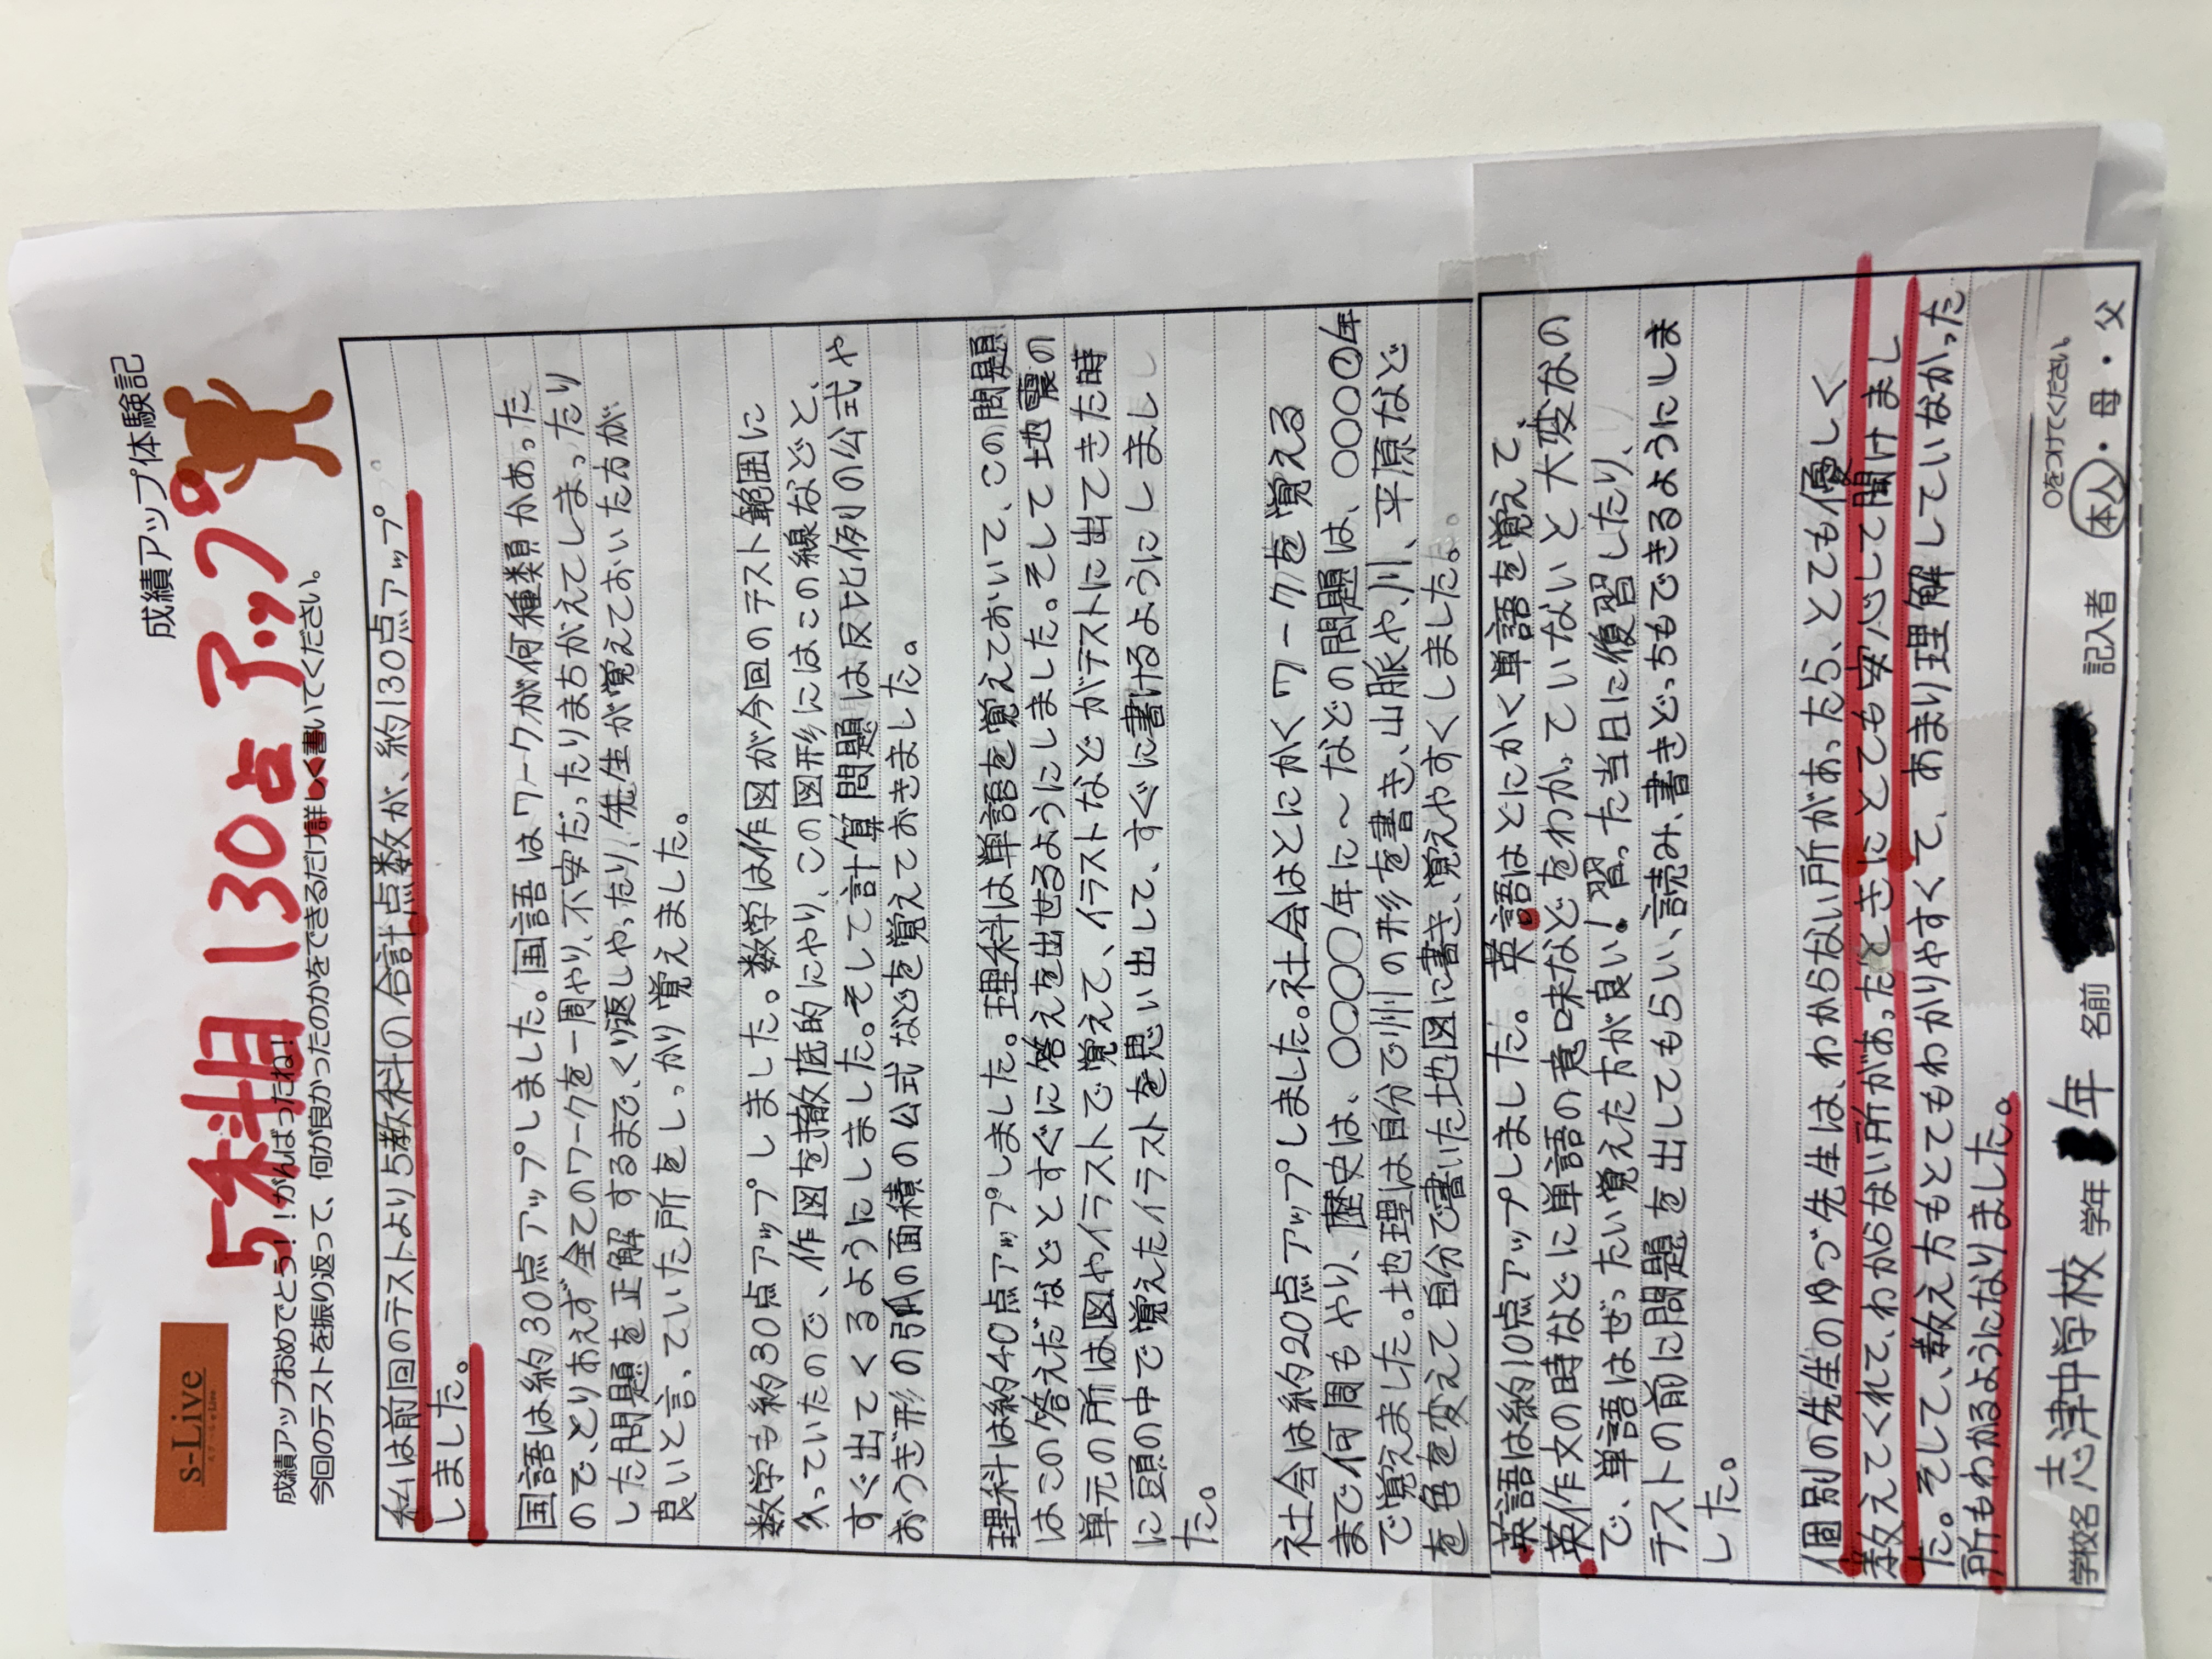 成績アップ体験記
s-Live
5科目 130点 アップ
成績アップおめでとう！！がんばったね！
今回のテストを振り返って、何が良かったのかをできるだけ詳しく書いてください。
私は前回のテストより5教科の合計点数が、約130点アップ
しました。
国語は約30点アップしました。国語はワークが何種類かあった
ので、とりあえず全てのワークを一周やり、不安だったりまちがえてしまったり
した問題を正解するまで、くり返しやったり、先生が覚えておいた方が
良いと言っていた所をしっかり覚えました。
数学も約30点アップしました。数学は作図が今回のテスト範囲に
入っていたので、作図を徹底的にやり、この図形にはこの線などと、
すぐ出てくるようにしました。そして計算問題は反比例の公式や
おうぎ形の弧の面積の公式などを覚えておきました。
理科は約40点アップしました。理科は単語を覚えておいて、この問題
はこの答えだなどとすぐに答えを出せるようにしました。そして地震の
単元の所は図やイラストで覚えて、イラストなどがテストに出てきた時
に頭の中で覚えたイラストを思い出して、すぐに書けるようにしまし
た。
社会は約20点アップしました。社会はとにかくワークを覚える
まで何周もやり、歴史は、○○○○年に～などの問題は、○○○○年
で覚えました。地理は自分で州の形を書き、山脈や川、平原など
を色を変えて自分で書いた地図に書き、覚えやすくしました。
英語は約10点アップしました。英語はとにかく単語を覚えて、
英作文の時などに単語の意味などをわかっていないと大変なの
で、単語はぜったい覚えた方が良い！習った当日に復習したり、
テストの前に問題を出してもらい、読み、書きどっちもできるようにしま
した。
個別の先生のゆづ先生は、わからない所があったら、とても優しく
教えてくれて、わからない所があったときにとても安心して聞けまし
た。そして、教え方もとてもわかりやすくて、あまり理解していなかった
所もわかるようになりました。
○をつけてください。
学校名 志津中学校 学年 年 名前 記入者 本人・母・父